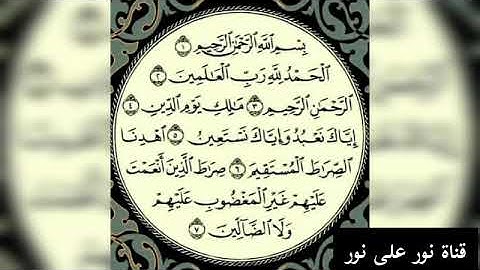 بِسْمِ ٱللَّهِ ٱلرَّحْمَٰنِ ٱلرَّحِيمِ ١
ٱلْحَمْدُ لِلَّهِ رَبِّ ٱلْعَٰلَمِينَ ٢
ٱلرَّحْمَٰنِ ٱلرَّحِيمِ ٣ مَٰلِكِ يَوْمِ ٱلدِّينِ ٤
إِيَّاكَ نَعْبُدُ وَإِيَّاكَ نَسْتَعِينُ ٥ ٱهْدِنَا
ٱلصِّرَٰطَ ٱلْمُسْتَقِيمَ ٦ صِرَٰطَ ٱلَّذِينَ أَنْعَمْتَ
عَلَيْهِمْ غَيْرِ ٱلْمَغْضُوبِ عَلَيْهِمْ
وَلَا ٱلضَّآلِّينَ ٧
قناة نور على نور